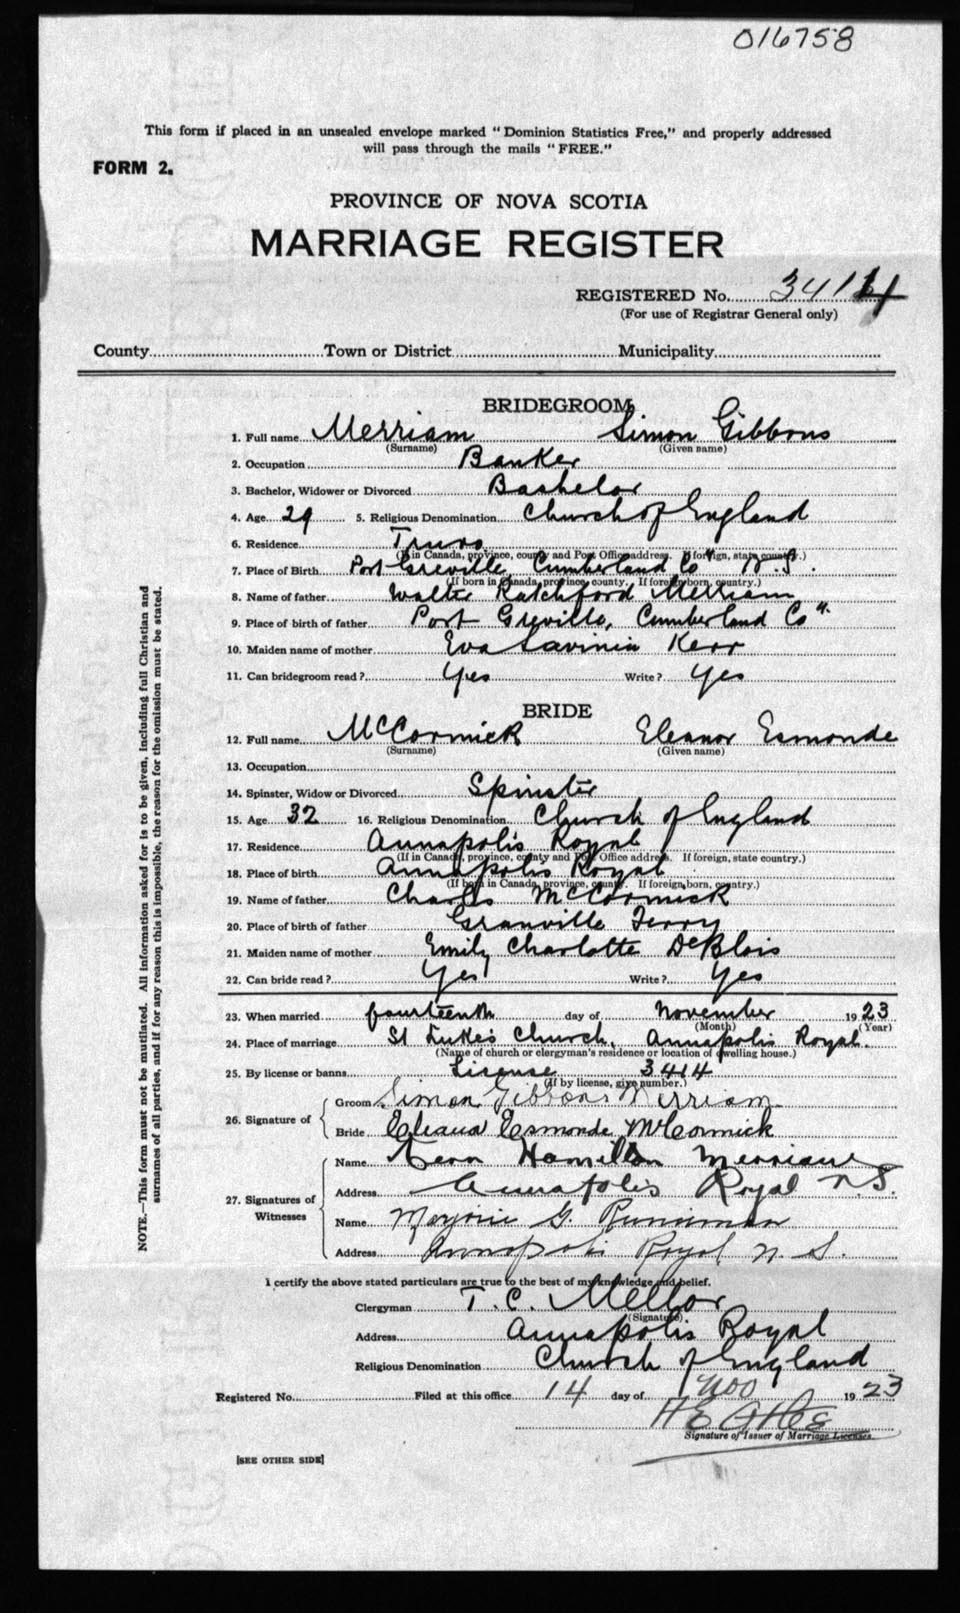 016758
This form if placed in an unsealed envelope marked "Dominion Statistics Free," and properly addressed
will pass through the mails "FREE."
FORM 2.
PROVINCE OF NOVA SCOTIA
MARRIAGE REGISTER
REGISTERED No. 3414
(For use of Registrar General only)
County Town or District Municipality
BRIDEGROOM
1. Full name Merriam Simon Gibbons
(Surname) (Given name)
2. Occupation Banker
3. Bachelor, Widower or Divorced Bachelor
4. Age 29 5. Religious Denomination Church of England
6. Residence Truro
(If in Canada, province, county and Post Office address. If foreign, state country.)
7. Place of Birth Port Greville Cumberland Co N.S.
(If born in Canada, province, county. If foreign born, country.)
8. Name of father Walter Ratchford Merriam
9. Place of birth of father Port Greville, Cumberland Co
10. Maiden name of mother Eva Lavinia Kerr
11. Can bridegroom read? Yes Write? Yes
BRIDE
12. Full name McCormick Eleanor Esmonde
(Surname) (Given name)
13. Occupation
14. Spinster, Widow or Divorced Spinster
15. Age 32 16. Religious Denomination Church of England
17. Residence Annapolis Royal
(If in Canada, province, county and Post Office address. If foreign, state country.)
18. Place of birth Annapolis Royal
(If born in Canada, province, county. If foreign born, country.)
19. Name of father Charles McCormick
20. Place of birth of father Granville Ferry
21. Maiden name of mother Emily Charlotte DeBlois
22. Can bride read? Yes Write? Yes
23. When married fourteenth day of November 1923
(Month) (Year)
24. Place of marriage St Luke's Church, Annapolis Royal.
(Name of church or clergyman's residence or location of dwelling house.)
25. By license or banns License 3414
(If by license, give number.)
26. Signature of
Groom Simon Gibbons Merriam
Bride Eleanor Esmonde McCormick
27. Signatures of Witnesses
Name Hamilton Merriam
Address Annapolis Royal N.S.
Name Marjorie G. Runciman
Address Annapolis Royal N.S.
I certify the above stated particulars are true to the best of my knowledge and belief.
Clergyman T. C. Mellor
(Signature)
Address Annapolis Royal
Religious Denomination Church of England
Registered No. Filed at this office 14 day of Nov 1923
Signature of Issuer of Marriage Licenses
[SEE OTHER SIDE]
NOTE.—This form must not be mutilated. All information asked for is to be given, including full Christian and
surnames of all parties, and if for any reason this is impossible, the reason for the omission must be stated.